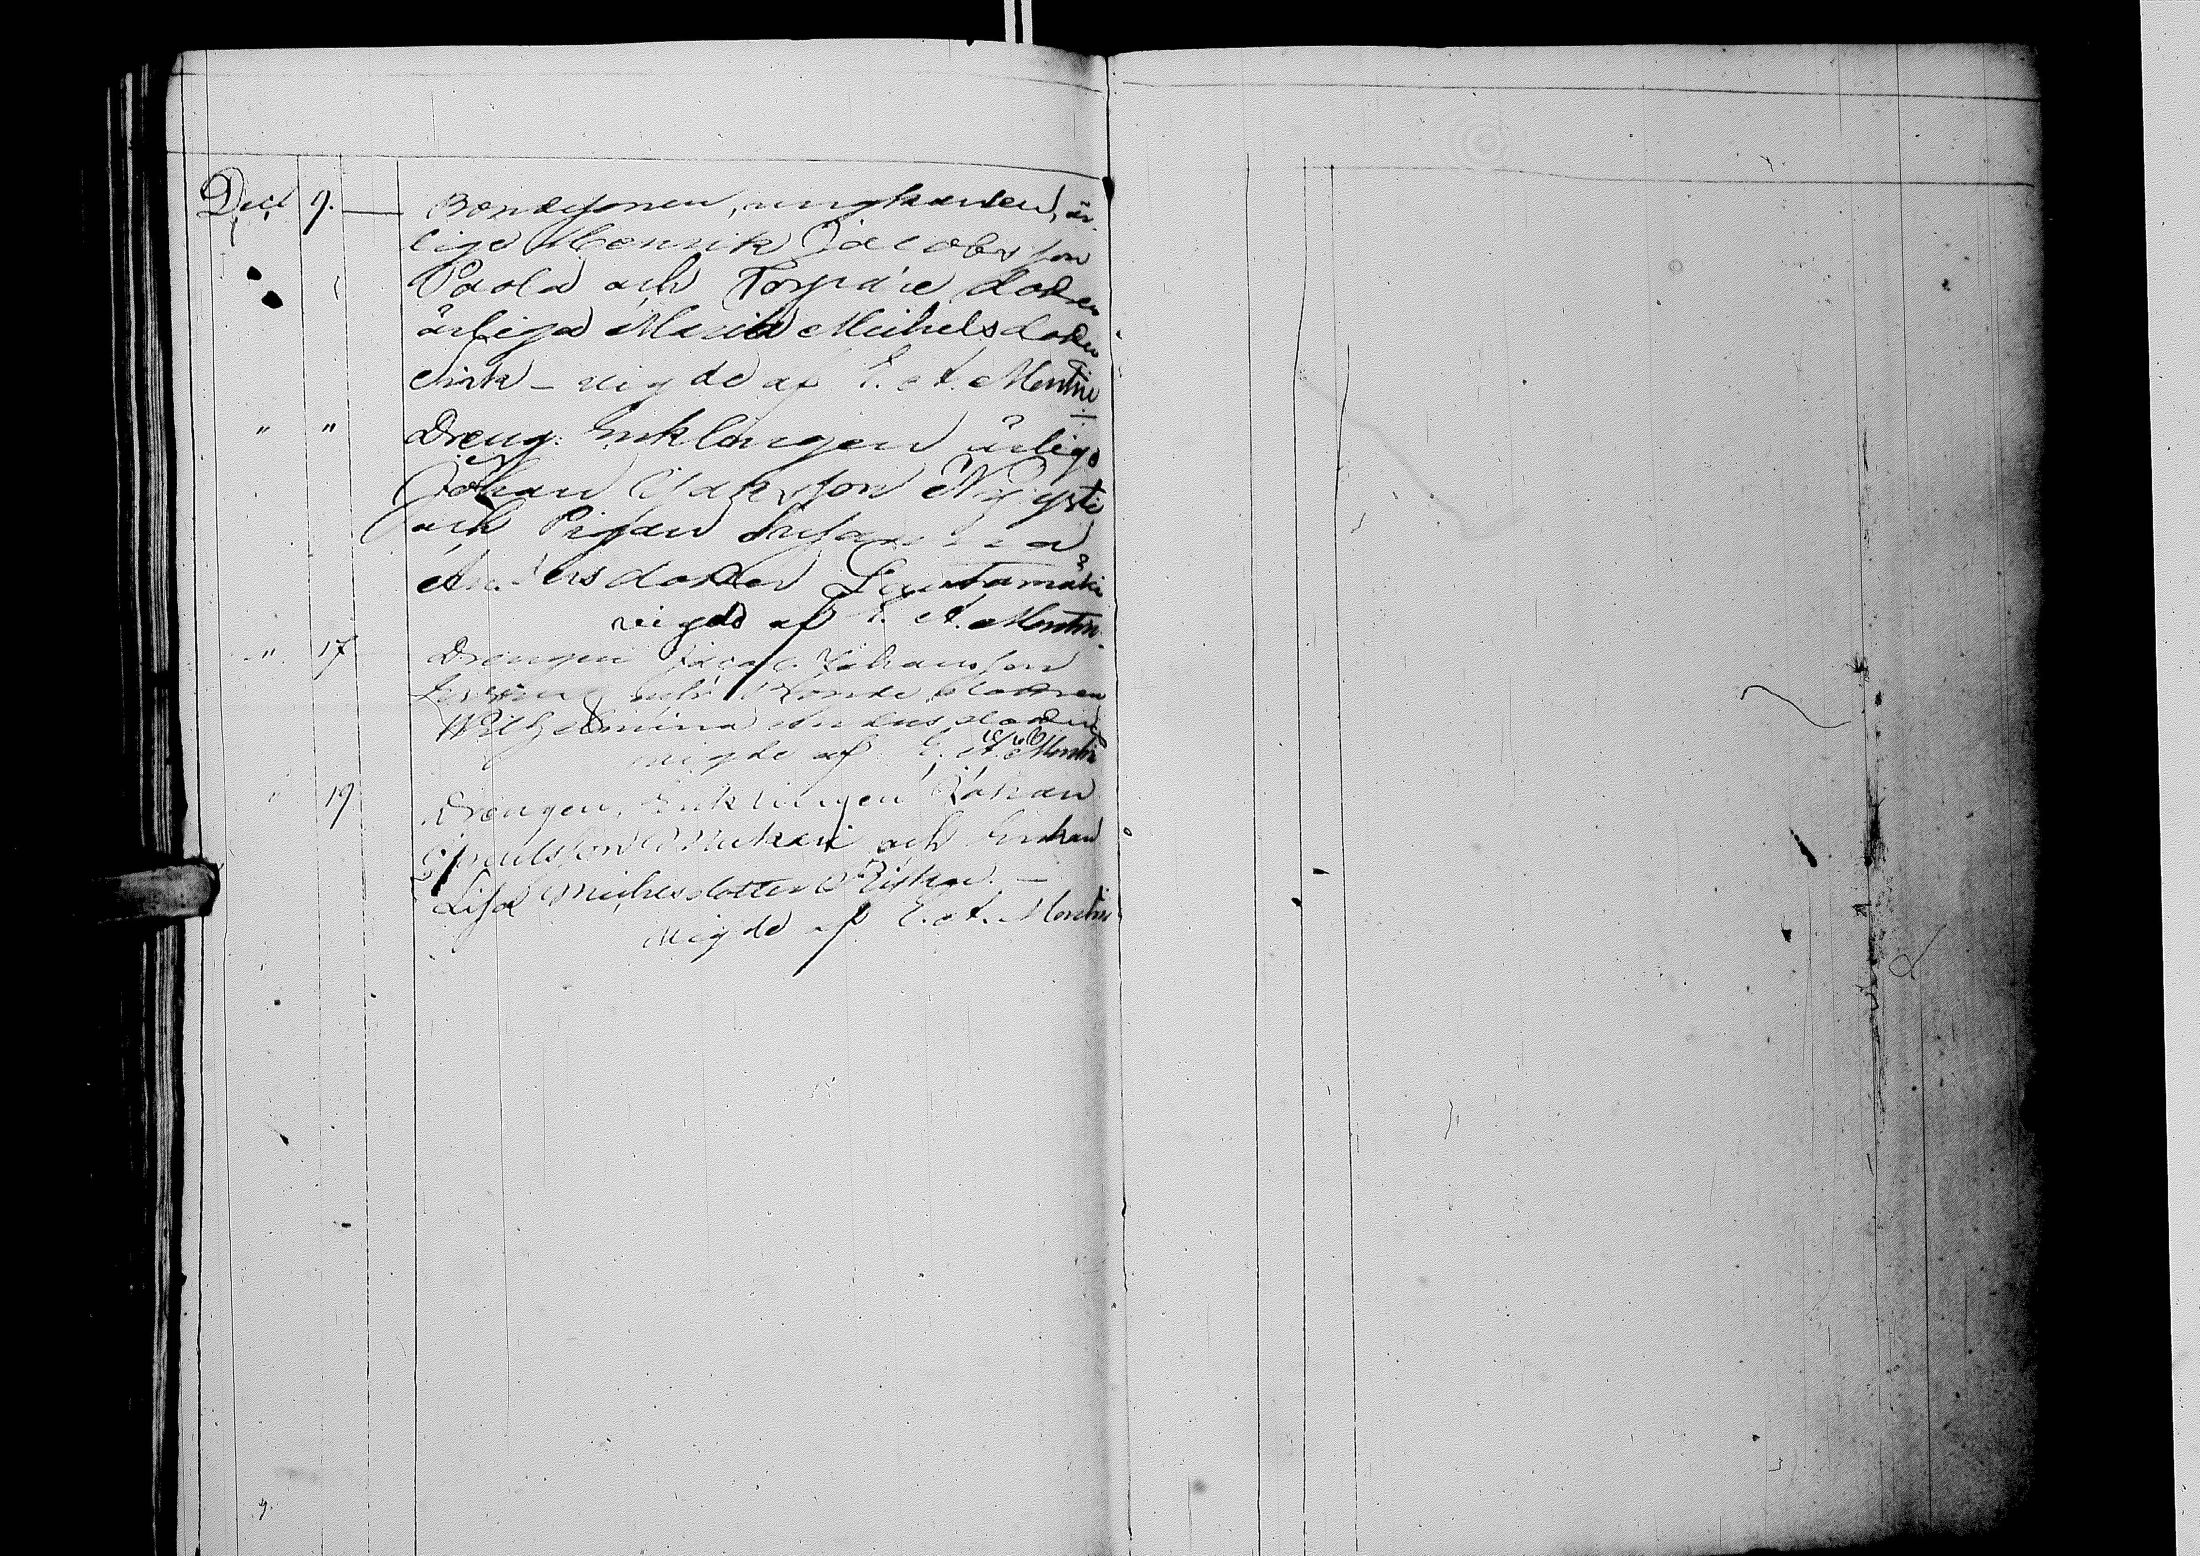 Dec. 9. — Bondesonen, ungkarlen, är-
lige Henrik Jacobsson
Paola och Torpare dottren
ärliga Maria Michelsdotter
— vigde af E. A. Montin
" " Dreng. Enklingen ärlige
Johan Isaksson
och Pigan Susanna
Andersdotter Lautamäki
vigde af E. A. Montin
" 17 Drengen Jacob Johansson
och Bonde dottren
Wilhelmina Andersdotter
vigde af E. A. Montin
" 19 Drengen, Enklingen Johan
och Enkan
Lisa Michelsdotter
vigde af E. A. Montin